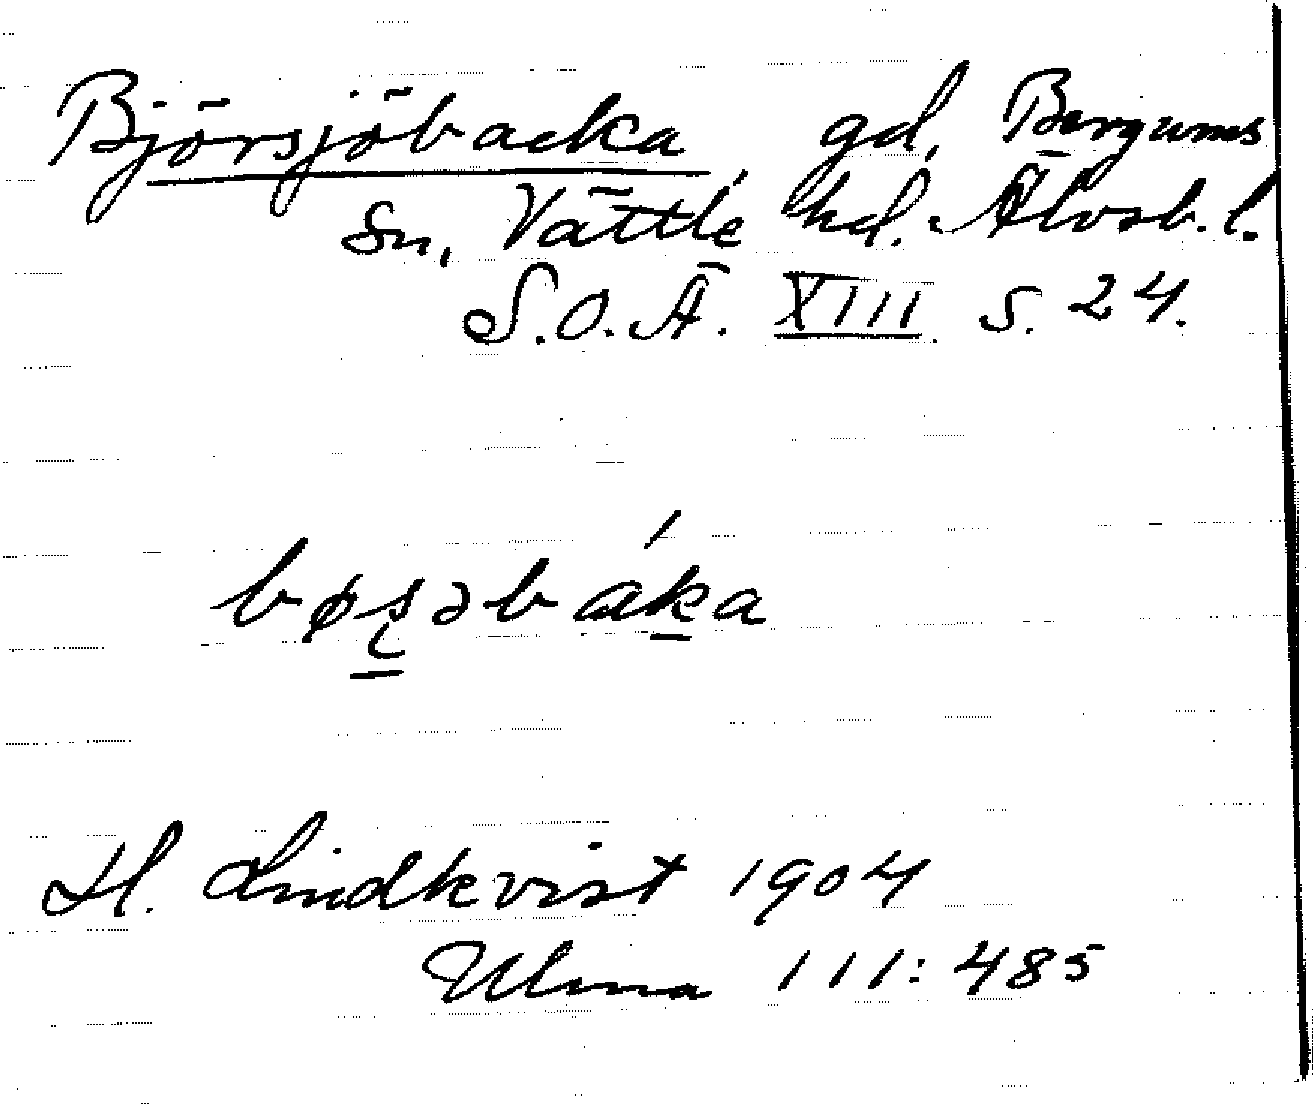 Björsjöbacka, gd, Bergums
sn, Vättle hd. Älvsb. l.
S.O.Ä. XIII s. 24.
H. Lindkvist 1904
Ulma 111:485